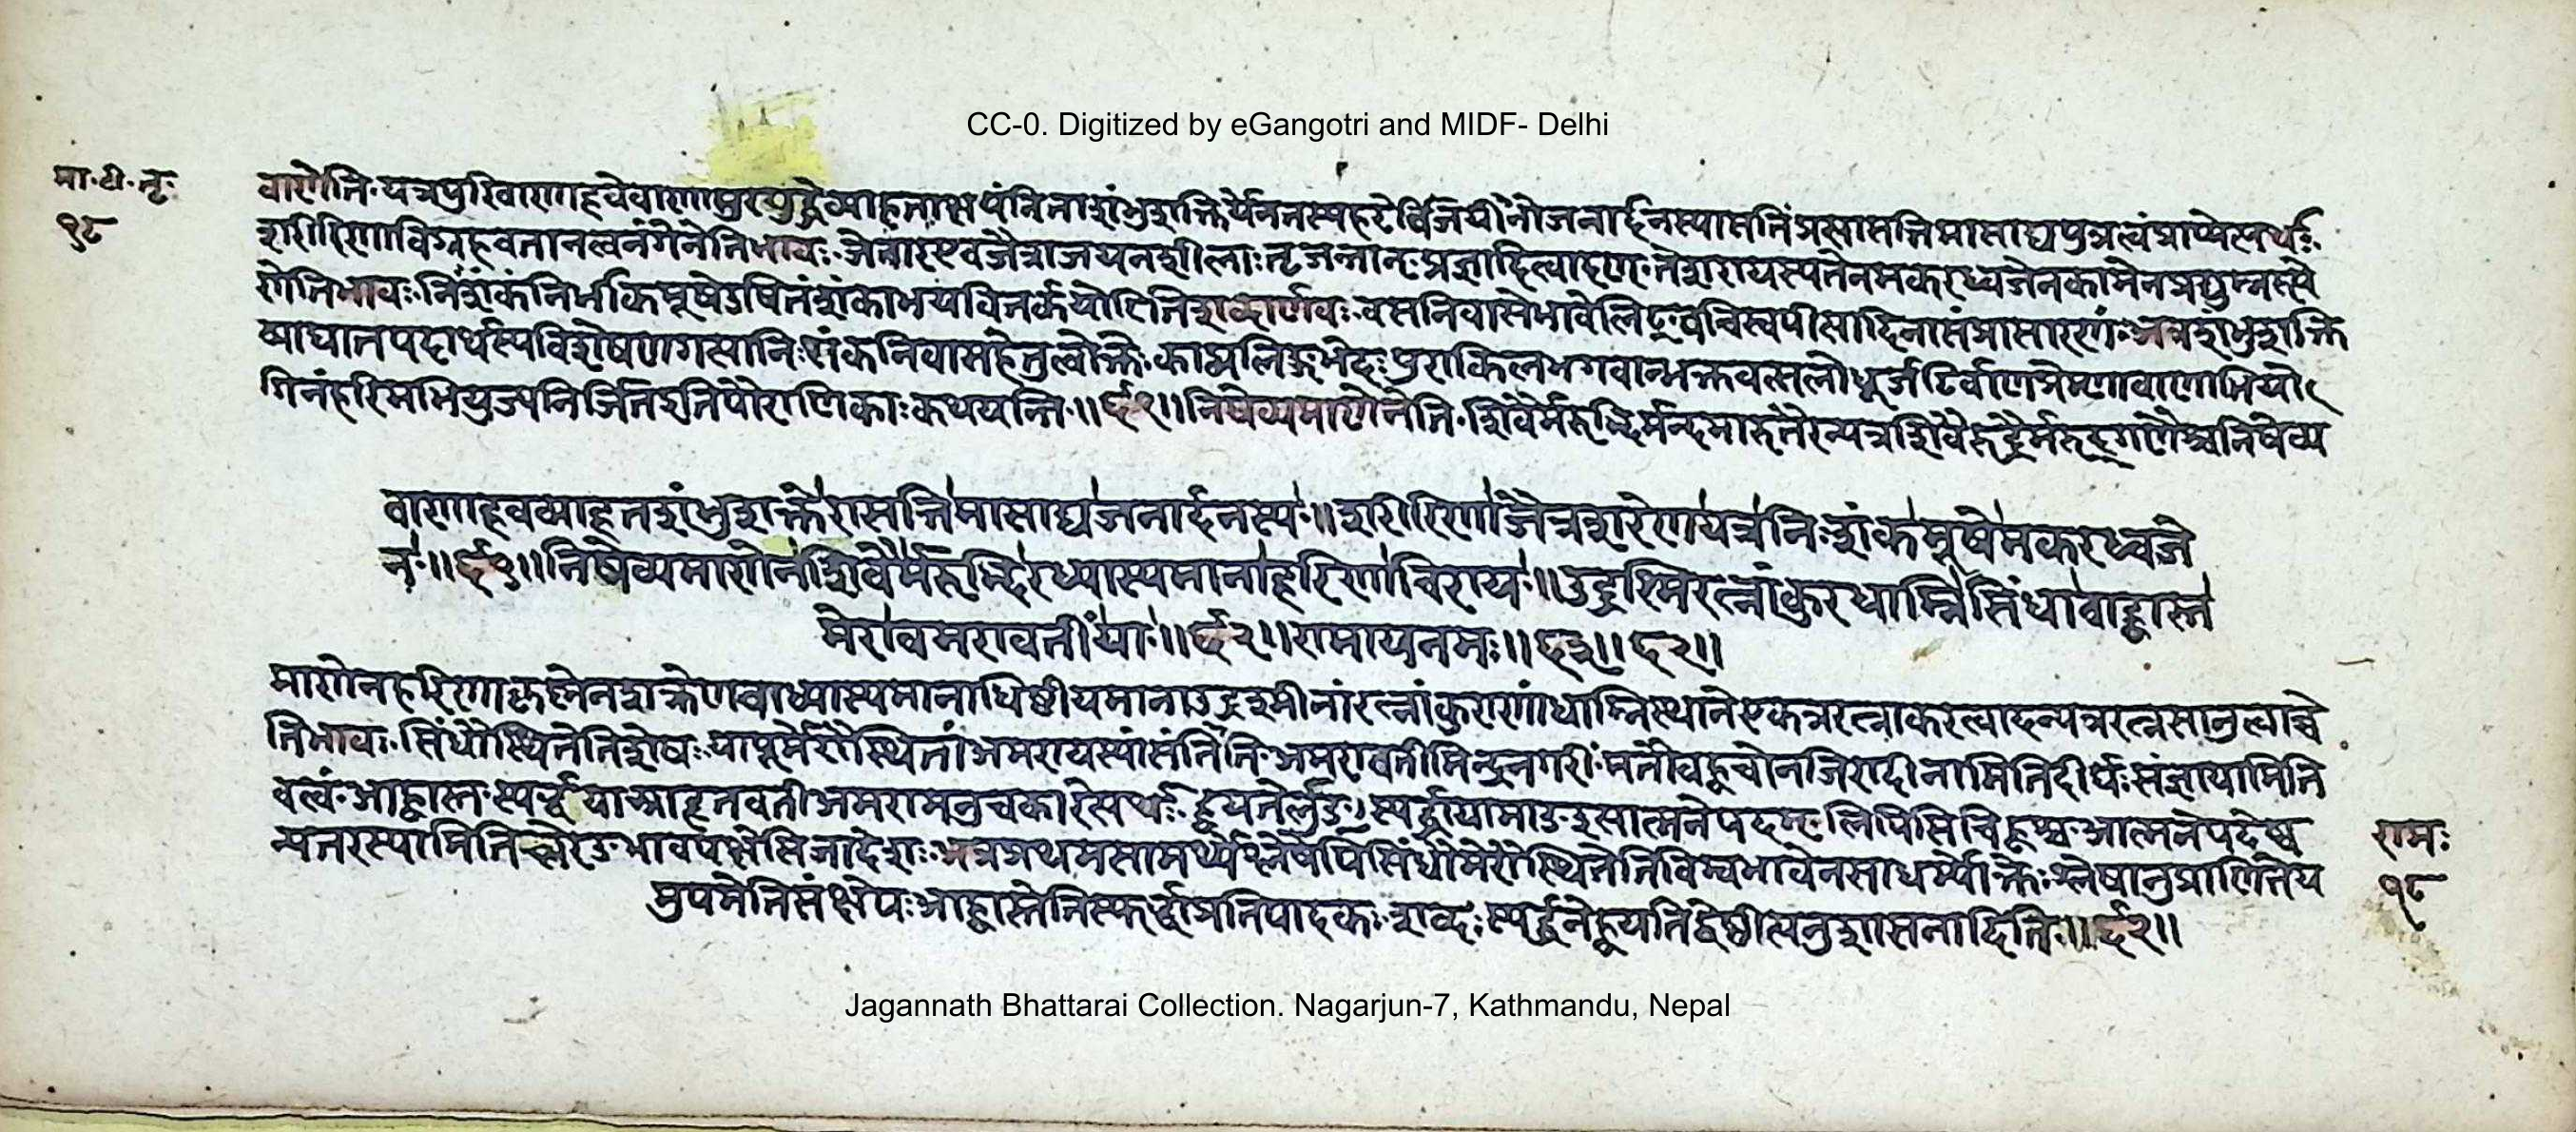 CC-0. Digitized by eGangotri and MIDF- Delhi
मा॰टी॰तृ॰
१८
वाणेति॰यत्रपुरिवाणाहवेवाणासुरयुद्धेव्याहताक्षयंनिताशंभुशक्तिर्येनतस्यहरेर्विजयिनोजनार्दनस्यासत्तिंप्रत्यासत्तिमासाद्यपुत्रत्वंप्राप्येत्यर्थः॰
शरीरिणाविग्रहवतानत्वनंगेनेतिभावः॰जेतारएवजैत्राजयनशीलाः॰तृजन्तात्प्रज्ञादित्वादण्॰तेशरायस्यतेनमकरध्वजेनकामेनप्रद्युम्नरूपे
णेतिभावः॰निःशंकंनिर्भीकमूषेउषितंशंकाभयवितर्कयोरितिशब्दार्णवः॰वसनिवासेभावेलिट्॰वचिस्वपीत्यादिनासंप्रसारणं॰अत्रशंभुशक्ति
व्याघातपदार्थस्यविशेषणगत्यानिःशंकनिवासहेतुत्वोक्तेः॰काव्यलिङ्गभेदः॰पुराकिलभगवान्भक्तवत्सलोधूर्जटिर्वाणप्रेम्णावाणाभियो
गिनंहरिमभियुज्यनिर्जितइतिपौराणिकाःकथयन्ति॰॥६१॥निषेव्यमाणेनेति॰शिवैर्मरुद्भिर्मन्दमारुतैरन्यत्रशिवैरुद्रैर्मरुद्गणैश्चनिषेव्य
वाणाहवव्याहतशंभुशक्तेरासत्तिमासाद्यजनार्दनस्य॰॥शरीरिणाजैत्रशरेणयत्रनिःशंकमूषेमकरध्वजे
न॰॥६१॥निषेव्यमाणेनशिवैर्मरुद्भिरध्यास्यमानाहरिणाचिराय॰॥उद्रश्मिरत्नांकुरधाम्निसिंधावाह्वास्त
मेरावमरावतींया॰॥६२॥रामायनमः॥
माणेनहरिणाकृष्णेनशक्रेणवाध्यास्यमानाधिष्ठीयमानाउद्रश्मीनांरत्नांकुराणांधाम्निस्थानेएकत्ररत्नाकरत्वादन्यत्ररत्नसानुत्वाच्चे
तिभावः॰सिंधौस्थितेतिशेषः॰यापूर्मेरौस्थितांअमरायस्यांसंतितिअमरावतीमिन्द्रनगरीं॰मतौबह्वचोनजिरादीनामितिदीर्घः॰संज्ञायामिति
वत्वं॰आह्वास्त॰स्पर्द्धयाआहूतवतीअमरामनुचकारेत्यर्थः॰ह्वयतेर्लुङ्॰स्पर्द्धायामाङइत्यात्मनेपदम्॰लिपिसिचिह्वश्च॰आत्मनेपदेष्व
न्यतरस्यामितिच्लेरङभावपक्षेसिजादेशः॰अत्रप्रथमसामर्थ्येश्लेषेपिसिंधौमेरौस्थितेतिविम्वभावेनसाधर्म्योक्तेः॰श्लेषानुप्राणितेय
मुपमेतिसंक्षेपः॰आह्वास्तेतिस्पर्द्धाप्रतिपादकः॰शब्दः॰स्पर्द्धतेह्वयतिद्वेष्टीत्यनुशासनादिति॰॥६२॥
रामः
१८
Jagannath Bhattarai Collection. Nagarjun-7, Kathmandu, Nepal